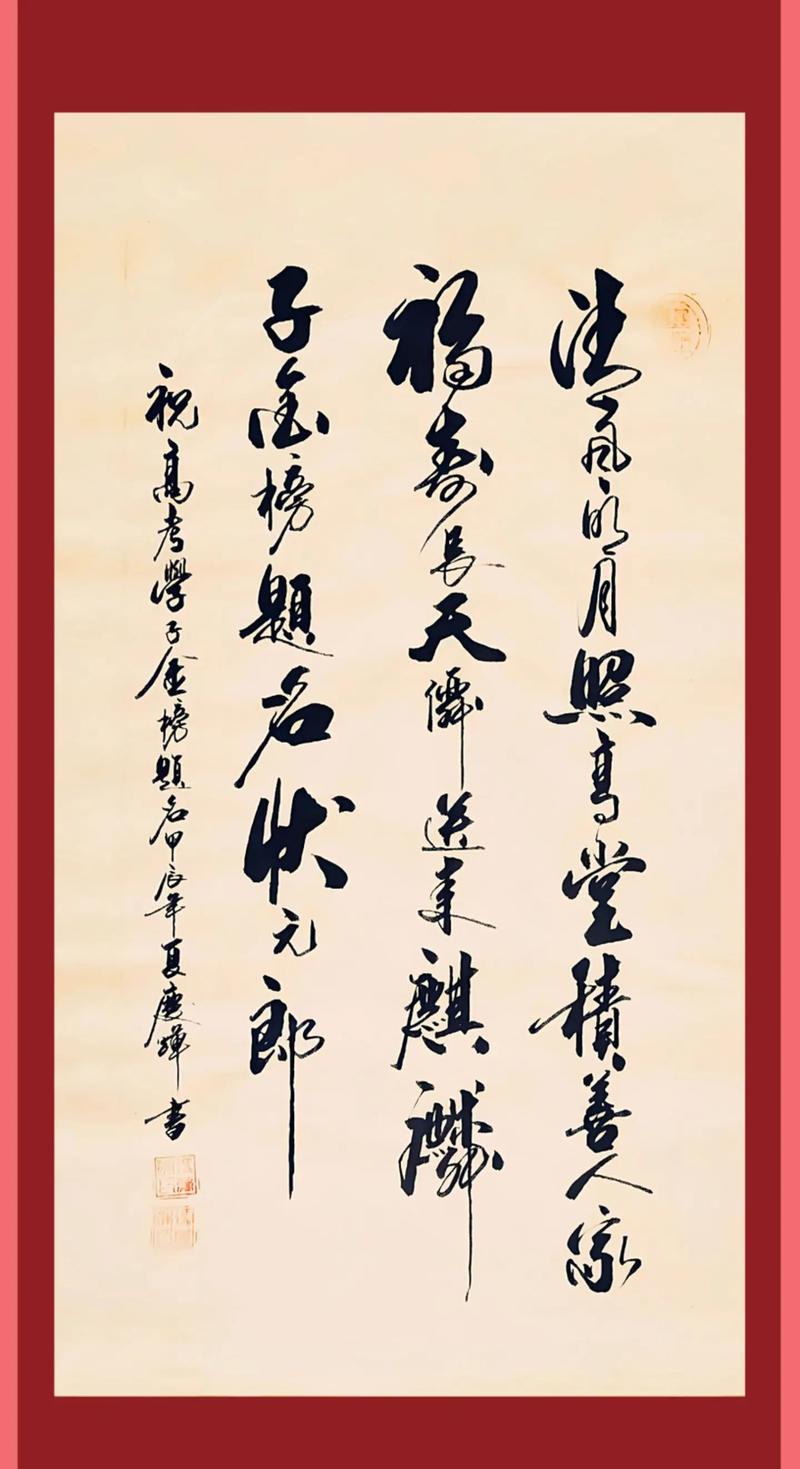 清風明月照高堂積善人家
福壽長天僊送來麒麟
子金榜題名狀元郎
祝高考學子金榜題名甲辰年夏慶輝書